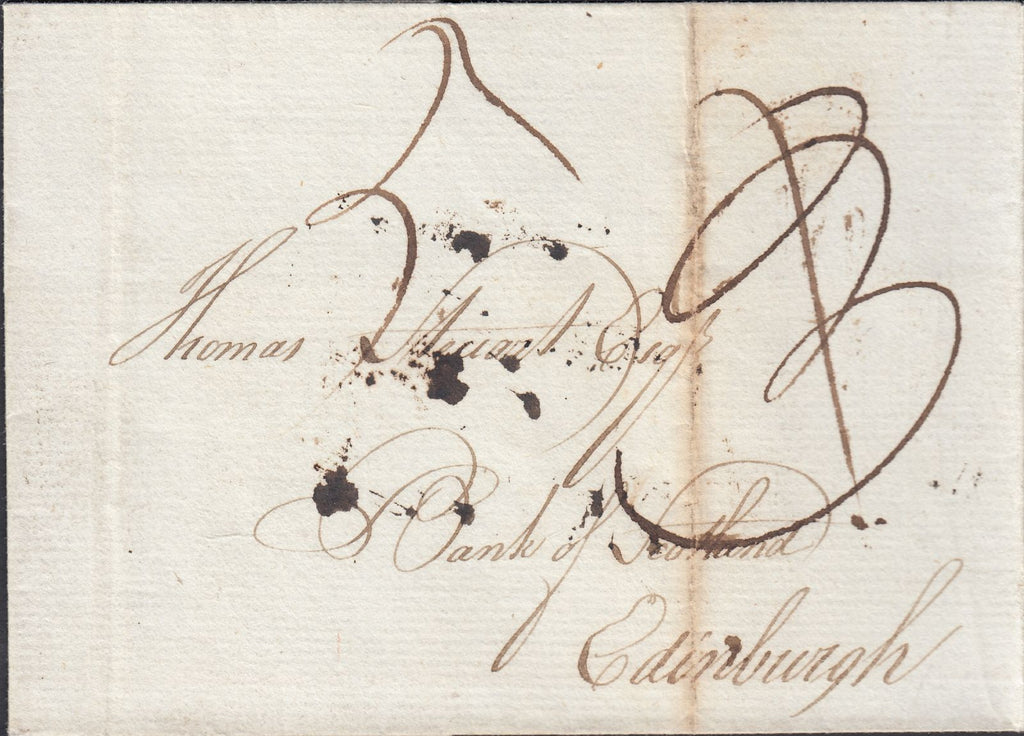 Thomas Steuart Esqr
Bank of Scotland
Edinburgh